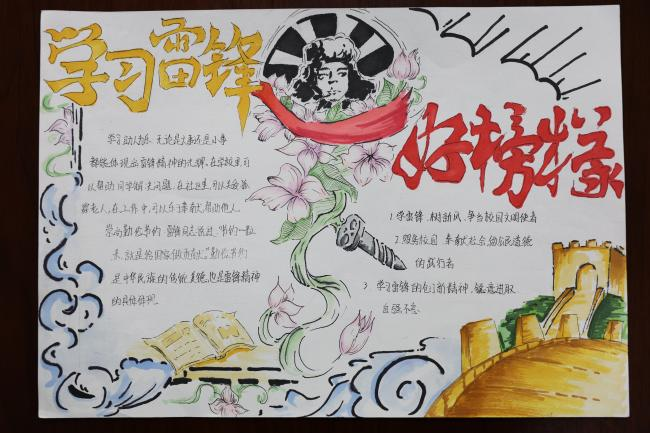 学习雷锋
好榜样
学习助人为乐 无论是大事还是小事
都能体现出雷锋精神的光辉,在学校里可
以帮助同学解决问题,在社区里,可以关爱孤
寡老人,在工作中,可以乐于奉献,帮助他人。
崇尚勤俭节约 雷锋同志说过:"节约一粒
米,就是给国家做贡献"勤俭节约
是中华民族的传统美德,也是雷锋精神
的具体体现。
1.学雷锋、树新风、争当校园文明使者
2.服务校园 奉献社会,公民道德
的践行者
3. 学习雷锋的创新精神,锐意进取
自强不息